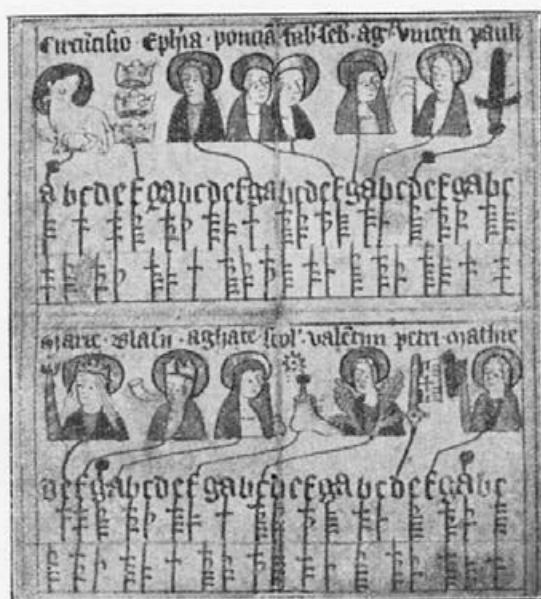 Circūcisio · Ephia · poncia · fab seb · agn · vincen pauli
abcdefgabcdefgabcdefgabcdefgabc
Marie · Blasii · aghate scol' · valētini petri · mathie
defgabcdefgabcdefgabcdefgabc